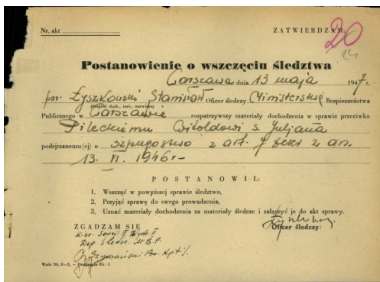 Nr. akt
ZATWIERDZAM:
20
Postanowienie o wszczęciu śledztwa
Warszawa dnia 13 maja 1947 r.
por. Łyszkowski Stanisław Oficer śledczy Ministerstwa Bezpieczeństwa
Publicznego w Warszawie rozpatrzywszy materiały dochodzenia w sprawie przeciwko
Pileckiemu Witoldowi s. Juljana
podejrzanem(ej) o szpiegostwo z art. 7 dekr. z dn.
13. VI. 1946 r.
POSTANOWIŁ:
1. Wszcząć w powyższej sprawie śledztwo,
2. Przyjąć sprawę do swego prowadzenia,
3. Uznać materiały dochodzenia za materiały śledcze i założyć je do akt sprawy.
ZGADZAM SIĘ
Oficer śledczy:
Kier. Sekcji II Wydz. II
Dep. Śledcz. M.B.P.